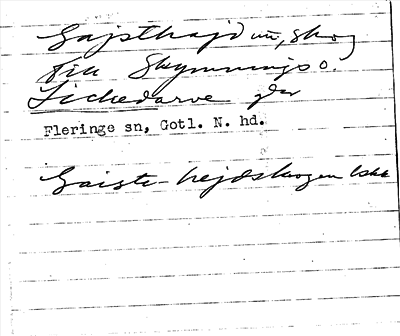 Gajsthajd un, skog
till Skymnings o.
Lickedarve gdr
Fleringe sn, Gotl. N. hd.
Gaiste-hejdskogen